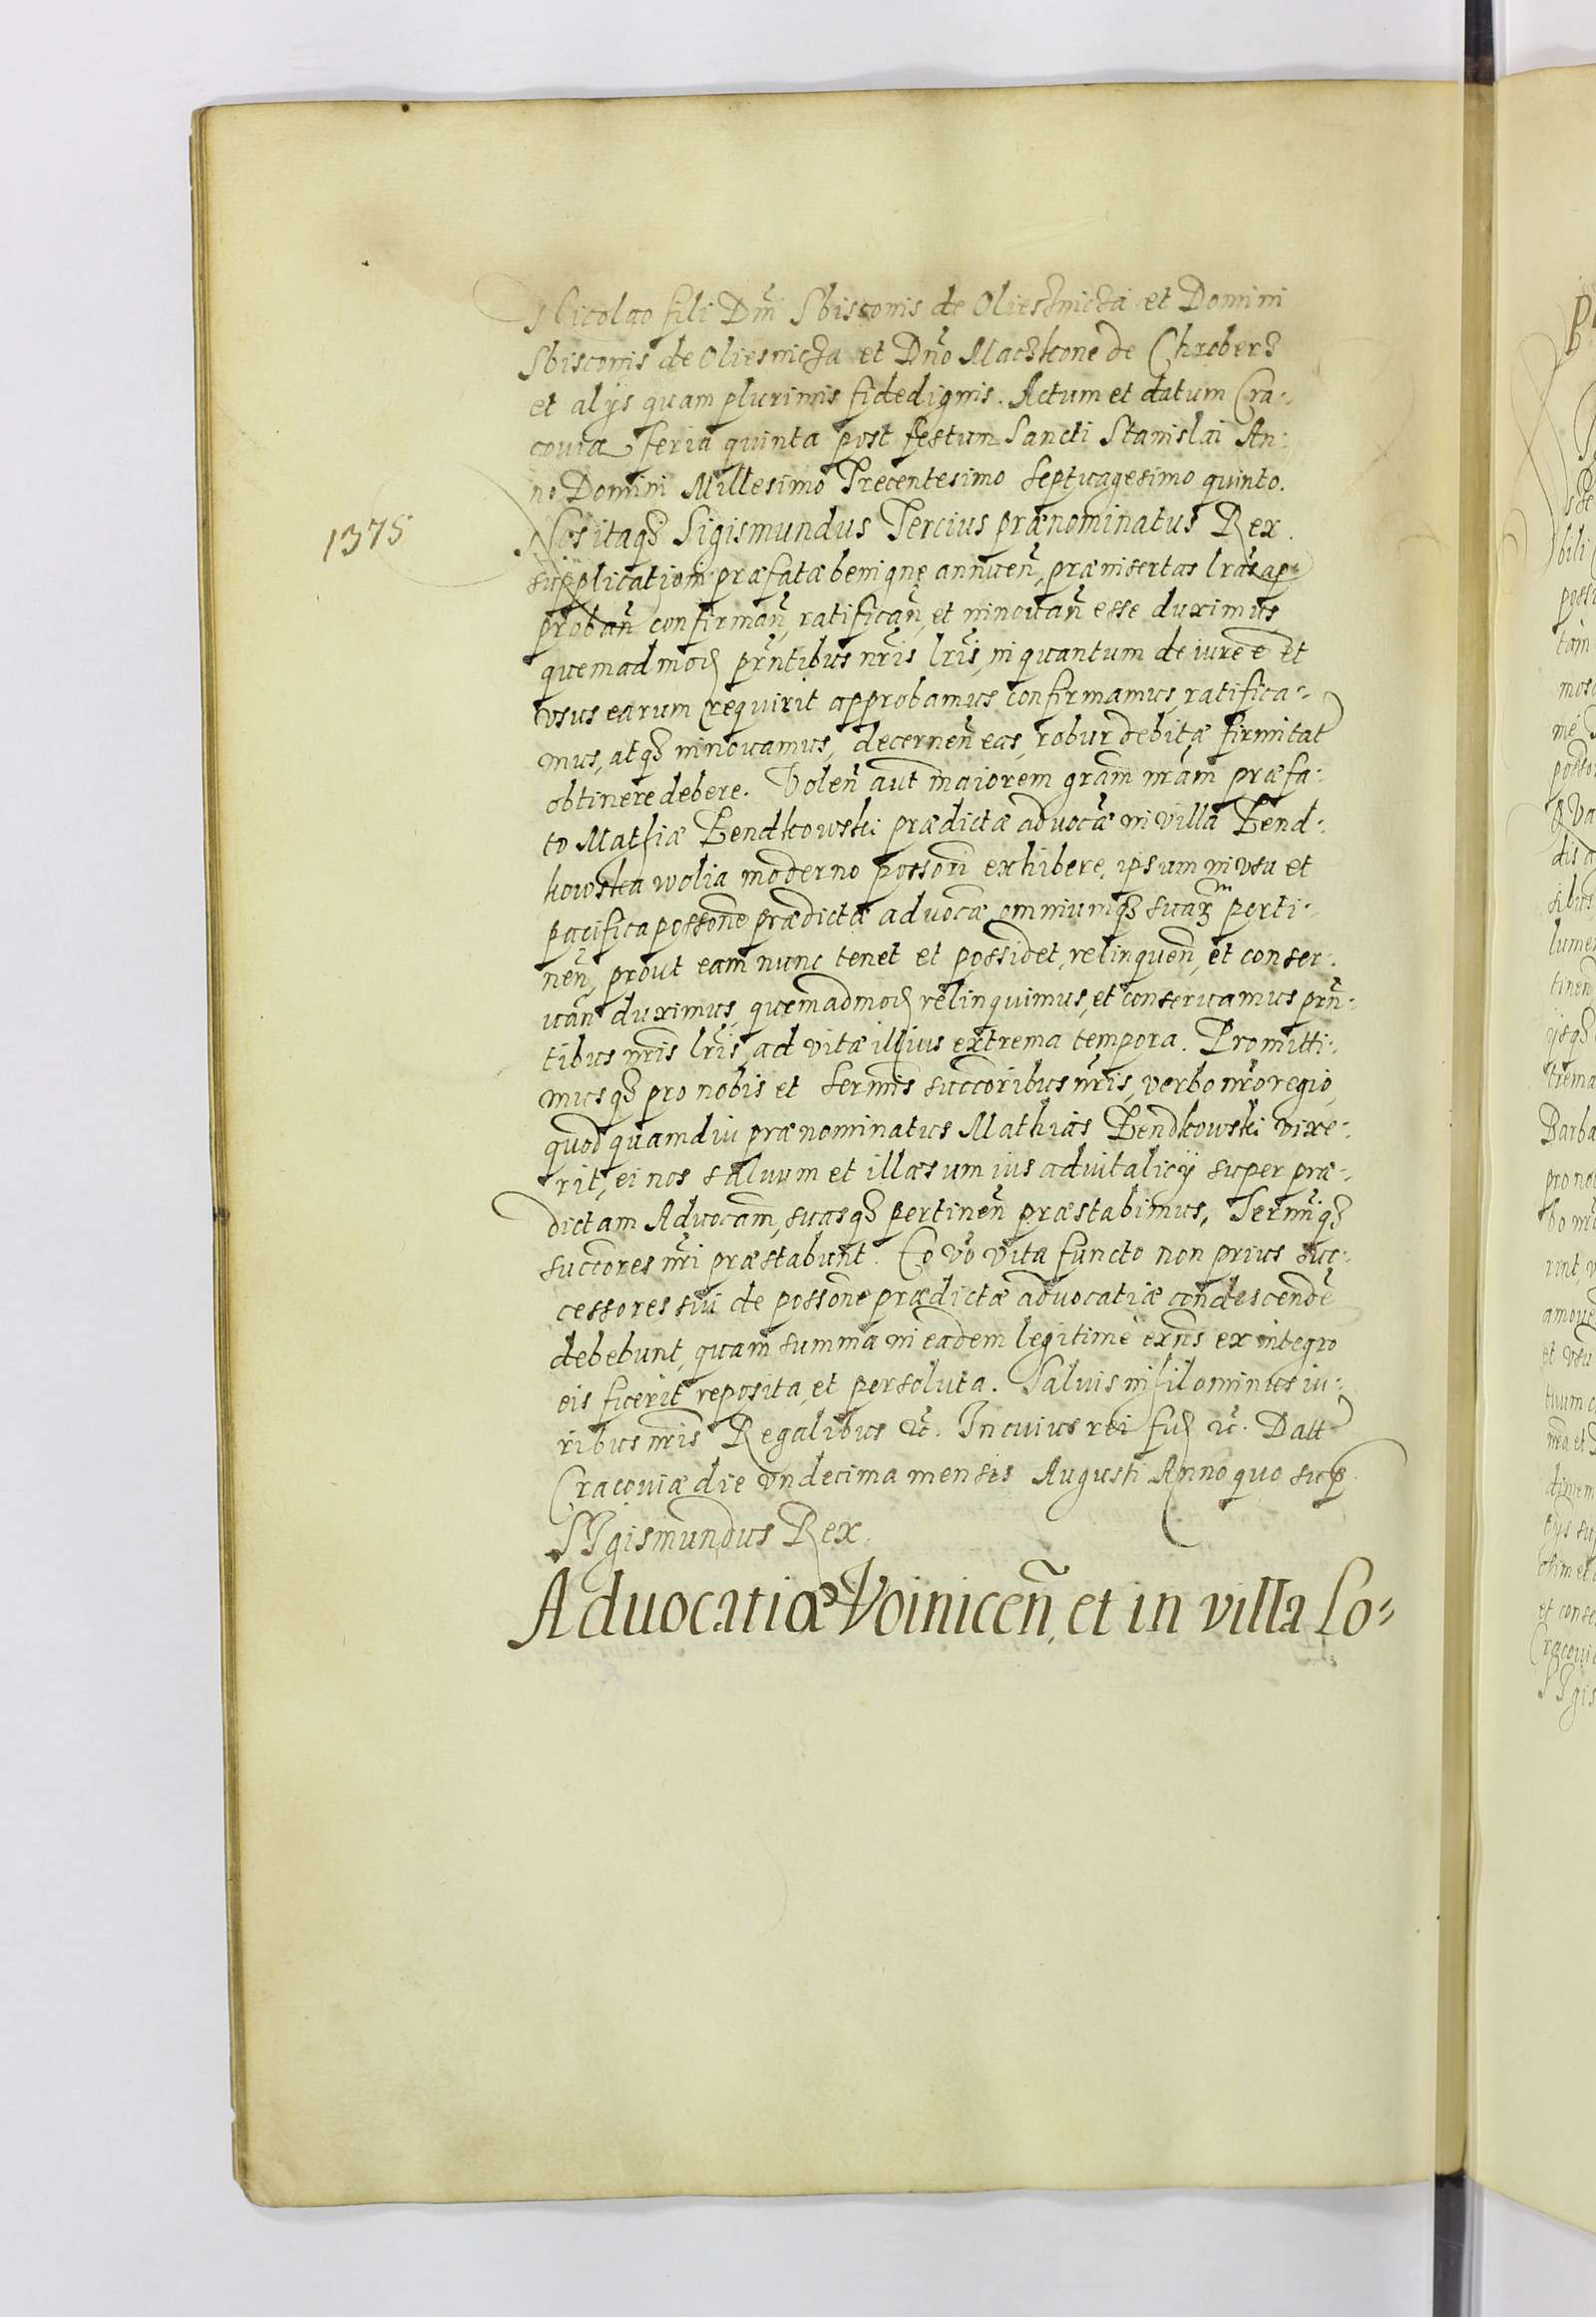 Nicolao fili Dnĩ Sbisconis de Oliesznicza et Domini
Sbisconis de Oliesnicza et Dño Maczkone de Chroberz
et alys quam plurimis fidedignis. Actum et datum Cra-
couia feria quinta post festum Sancti Stanislai An-
no Domini Millesimo Trecentesimo Septuagesimo quinto.
1375
Nos itaqȝ Sigismundus Tercius prænominatus Rex.
supplicationi præfatæ benigne annuen̄, præinsertas lr̃as ap-
proban̄ confirman̄, ratifican̄, et innouan̄ esse duximus
quemadmoȡ prn̄tibus nr̄is lr̄is, in quantum de iure ē et
vsus earum requirit approbamus confirmamus, ratifica-
mus, atqȝ innouamus, decernen̄ eas, robur debitæ firmitat
obtinere debere. Volen̄ aut̄ maiorem gram̄ nr̄am præfa-
to Mathiæ Bendkowski prædictæ aduocæ in villa Bend-
kowska wolia moderno possori exhibere, ipsum in vsu et
pacifica possone prædictæ aduocæ omniumqȝ suarm perti-
nen̄, prout eam nunc tenet et possidet, relinquen̄, et conser-
uan̄ duximus, quemadmoȡ relinquimus, et conseruamus prn̄-
tibus nr̄is lr̄is, ad vitæ illius extrema tempora. Promitti-
musqȝ pro nobis et Sermis succoribus nr̄is, verbo nr̄o regio,
quod quamdiu prænominatus Mathias Bendkowski vixe-
rit, ei nos saluum et illæsum ius aduitalicij super præ-
dictam Aduocam, suasqȝ pertinen̄ præstabimus, Sermiqȝ
succores nr̄i præstabunt. Eo vo vita functo non prius suc-
cessores sui de possone prædictæ aduocatiæ condescendē
debebunt, quam summa in eadem legitimè exn̄s ex integro
eis fuerit reposita, et persoluta. Saluis nihilominus iu-
ribus nr̄is Regalibus ꝛc̄. In cuius rei fuȡ ꝛc̄. Datt
Cracouiæ die vndecima mensis Augusti Anno quo sup.
Sigismundus Rex.
Aduocatiæ Voinicen̄, et in villa Lo-